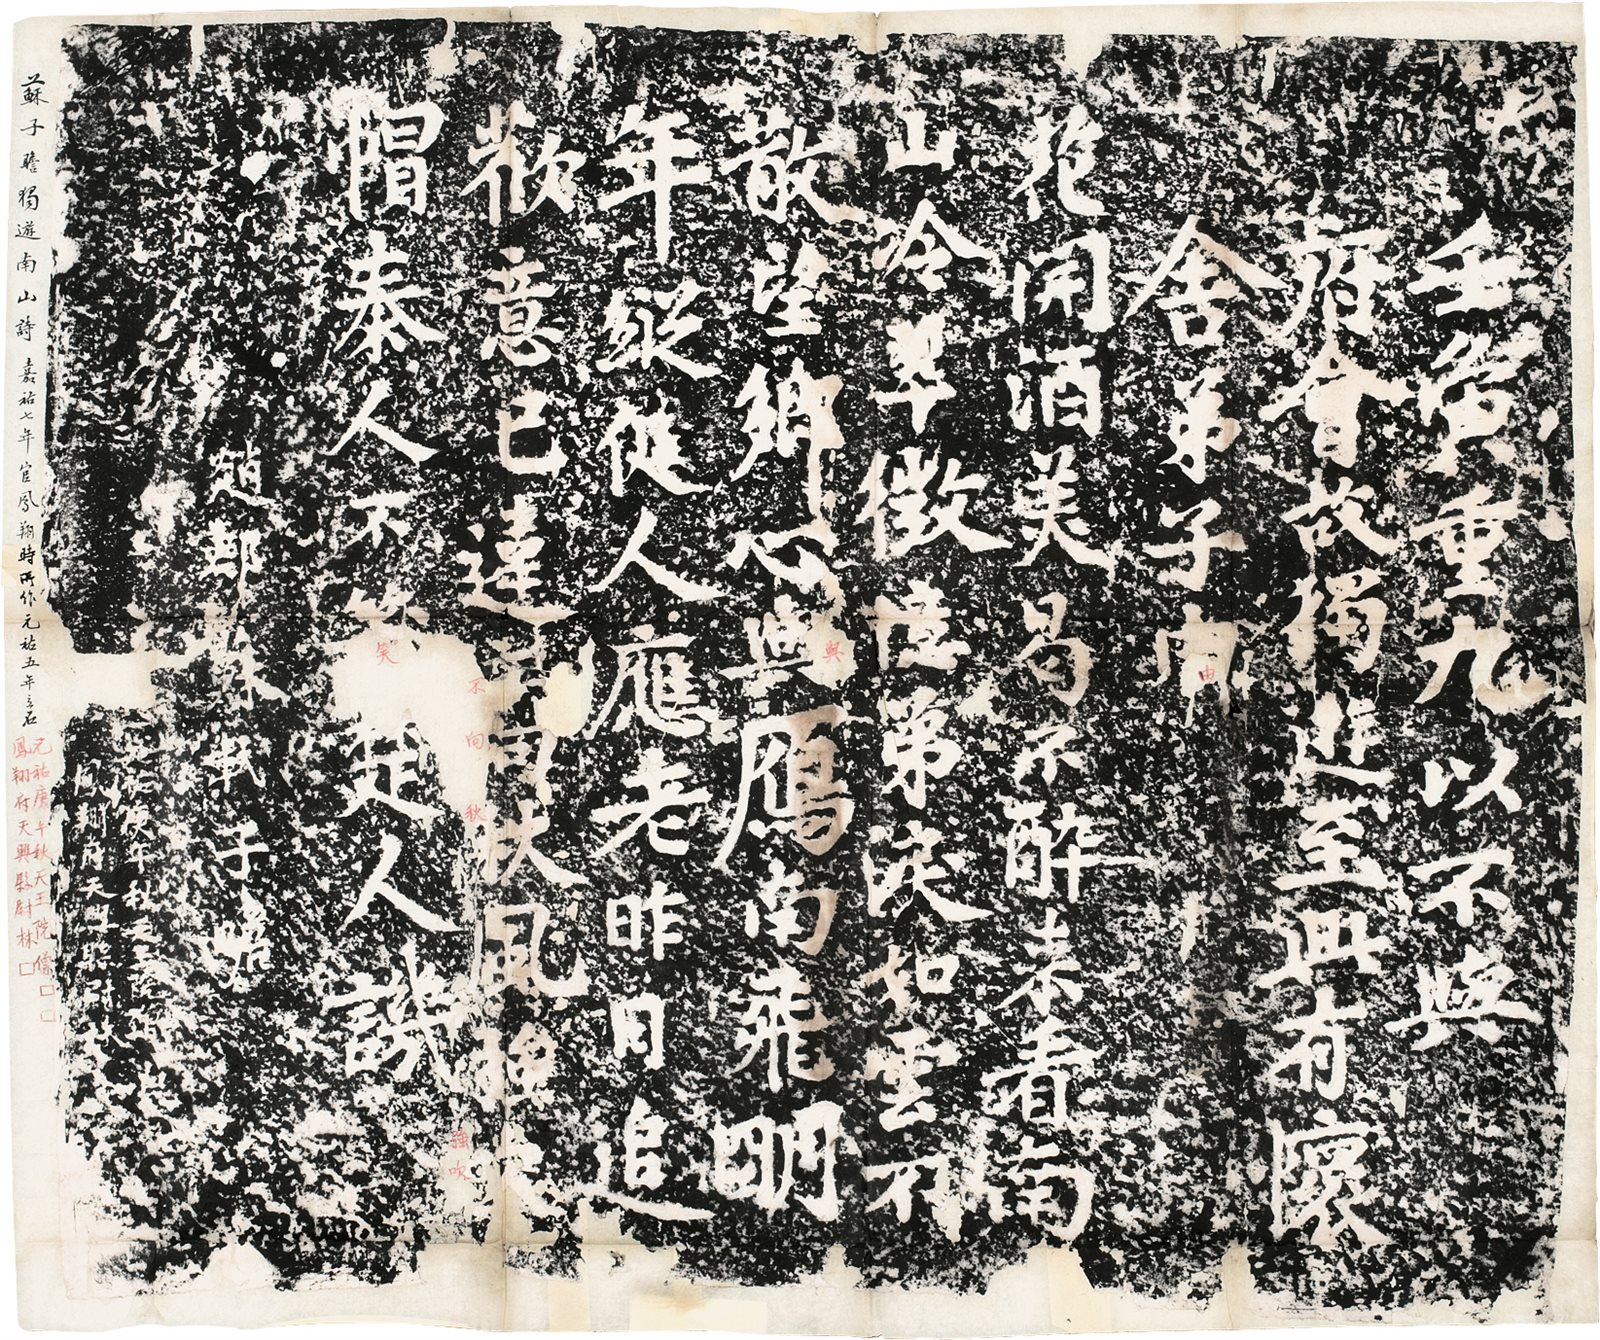 壬寅重九以不與
府會故獨遊至興有懷
舍弟子由
由
花開酒美曷不醉來看南
山冷翠微憶弟淚如雲不
散望鄉心與鴈南飛明
與
年縱健人應老昨日追
歡意已違不向秋風強吹
不向秋
強吹
帽秦人不笑楚人譏
笑
趙郡蘇軾子瞻
庚午秋天王院
鳳翔府天興縣尉
蘇子瞻獨遊南山詩 嘉祐七年官鳳翔時所作元祐五年立石
元祐庚午秋天王院僧□□
鳳翔府天興縣尉林□